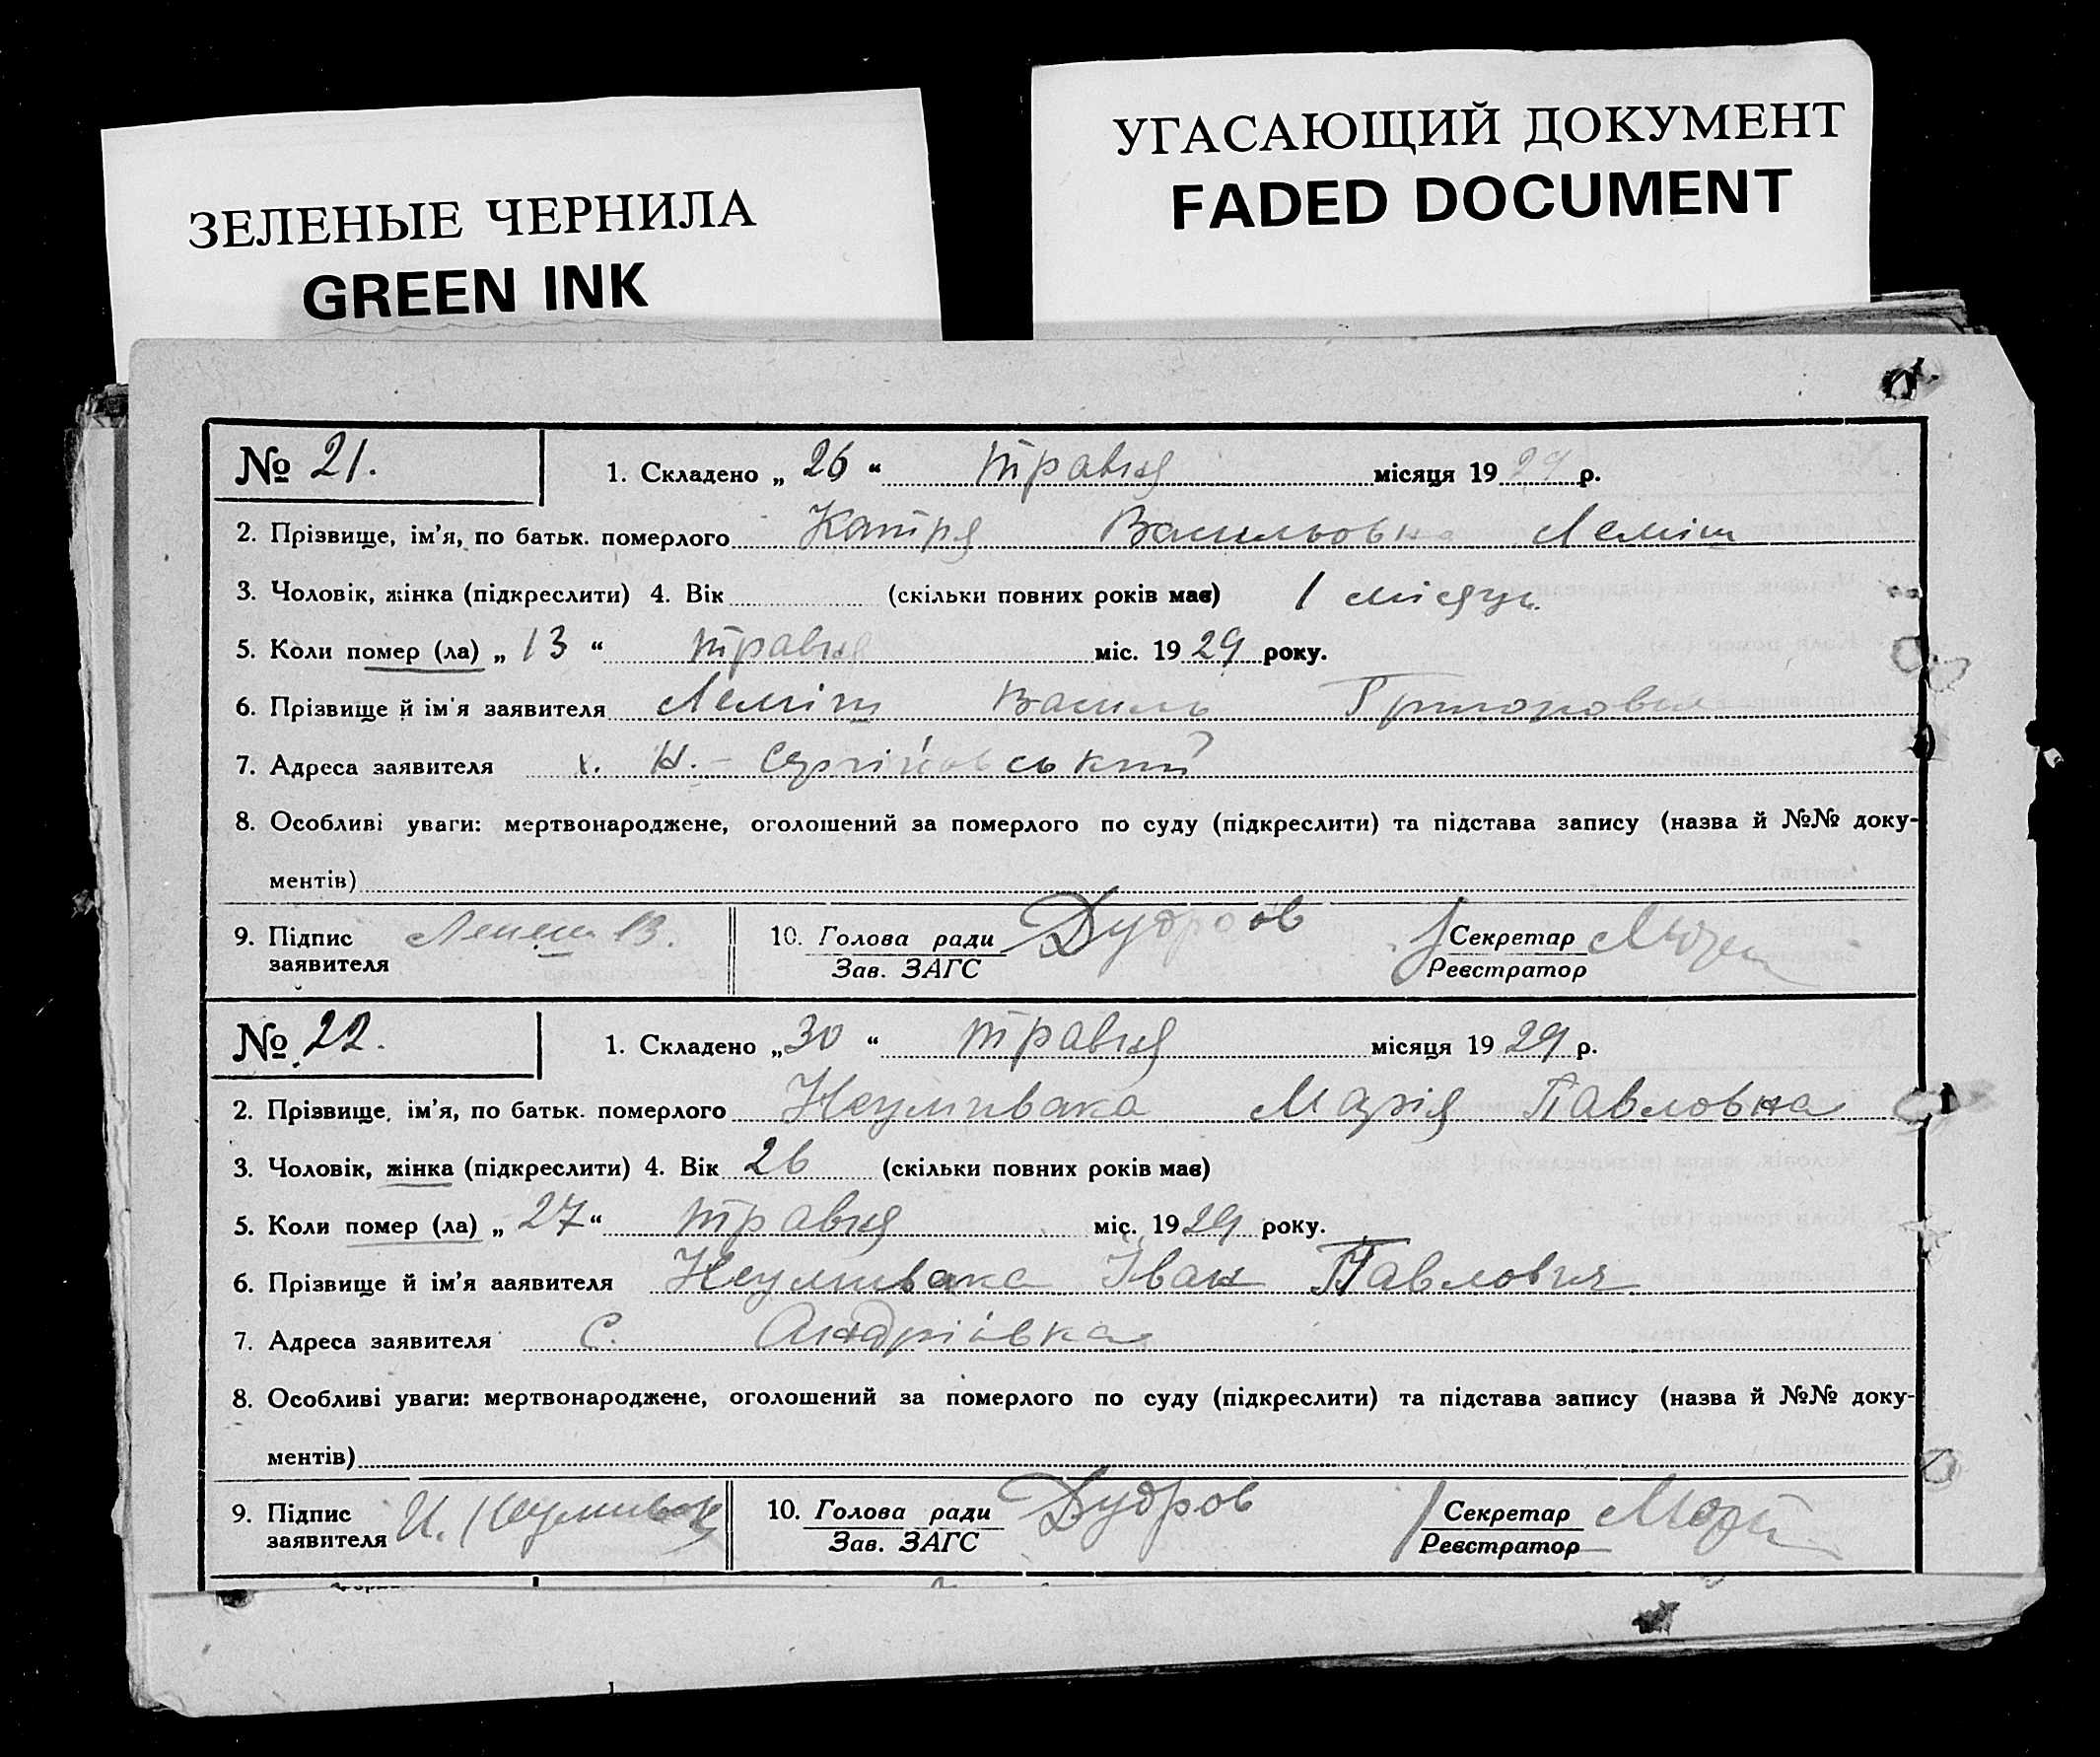 ЗЕЛЕНЫЕ ЧЕРНИЛА
GREEN INK
УГАСАЮЩИЙ ДОКУМЕНТ
FADED DOCUMENT
№ 21. 1. Складено „ 26 “ травня місяця 1929 р.
2. Прізвище, ім'я, по батьк. померлого Катря Васильовна Леміш
3. Чоловік, жінка (підкреслити) 4. Вік (скільки повних років має) 1 місяць
5. Коли помер (ла) „ 13 “ травня міс. 1929 року.
6. Прізвище й ім'я заявителя Леміш Василь Григорович
7. Адреса заявителя х. Н.-Сергіївський
8. Особливі уваги: мертвонароджене, оголошений за померлого по суду (підкреслити) та підстава запису (назва й №№ доку-
ментів)
9. Підпис заявителя В. 10. Голова ради Зав. ЗАГС Дудров Секретар Реєстратор
№ 22. 1. Складено „ 30 “ травня місяця 1929 р.
2. Прізвище, ім'я, по батьк. померлого Неумивака Марія Павловна
3. Чоловік, жінка (підкреслити) 4. Вік 26 (скільки повних років має)
5. Коли помер (ла) „ 27 “ травня міс. 1929 року.
6. Прізвище й ім'я ааявителя Неумивака Іван Павлович
7. Адреса заявителя с. Андріівка
8. Особливі уваги: мертвонароджене, оголошений за померлого по суду (підкреслити) та підстава запису (назва й №№ доку-
ментів)
9. Підпис заявителя И. Неумивак 10. Голова ради Зав. ЗАГС Дудров Секретар Реєстратор